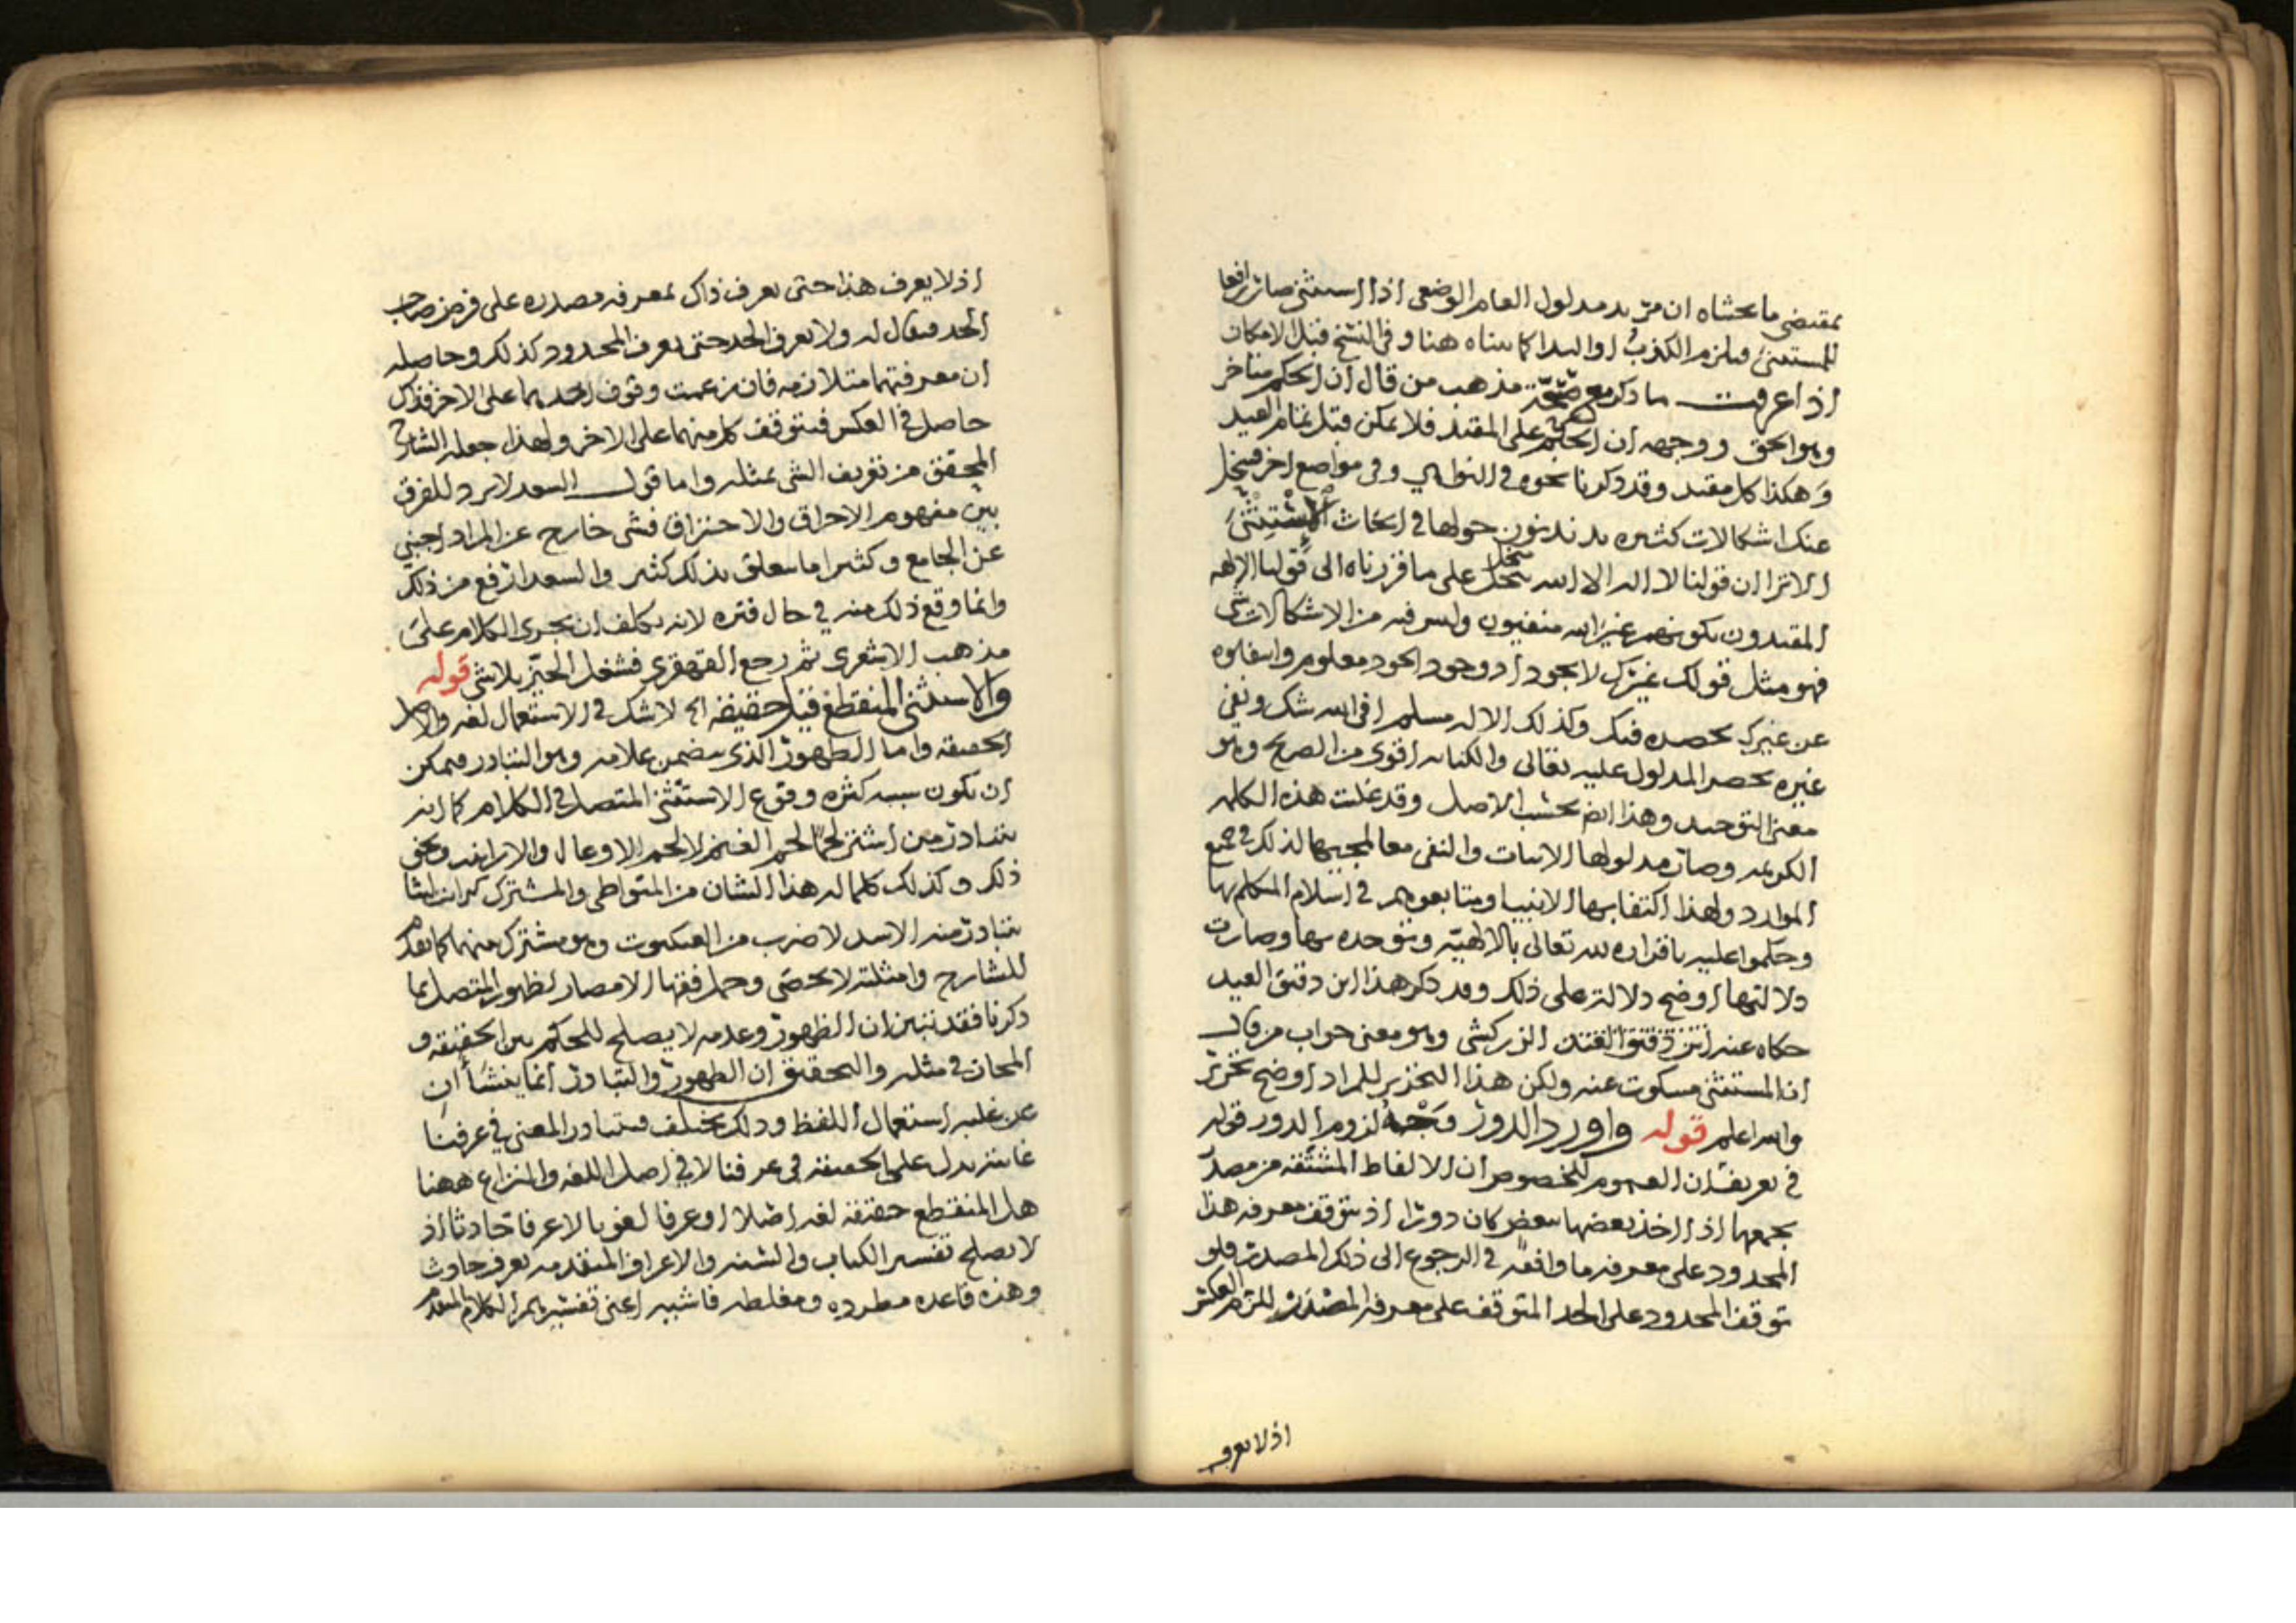 بمقتضى ما بحثناه ان مريد مدلول العام الوضعى اذا استثنى صار رافعا
للمستثنى فيلزم الكذب او البدا كما بيناه هنا وفى النسخ قبل الامكان
اذا عرفت ما ذكر مع صحة مذهب من قال ان الحكم متاخر
وهو الحق ووجهه ان الحكم على المقيد فلا يمكن قبل تمام القيد
وهكذا كل مقيد وقد ذكرنا نحوه فى النواهي وفى مواضع اخر فينحل
عنك اشكالات كثيره يدندنون حولها فى ابحاث الاستثنى
الا ترا ان قولنا لا اله الا الله ينحل على ما قررناه الى قولنا الاله
المقيدون بكونهم غير الله منفيون وليس فيه من الاشكالات شى
فهو مثل قولك غيرك لا يجود اذ وجود الجود معلوم وانتفاوه
عن غيرك بحصره فيك وكذلك الاله مسلم افى الله شك ونفى
غيره بحصر المدلول عليه تعالى والكنايه اقوى من الصريح وهو
معنى التوحيد وهذا ايضا بحسب الاصل وقد غلبت هذه الكلمه
الكريمه وصار مدلولها الاثبات والنفى معا لمجيبها لذلك فى جميع
الموارد ولهذا اكتفا بها الانبيا ومتابعوهم فى اسلام المتكلم بها
وحكموا عليه باقراره لله تعالى بالالهيه وتوحده بها وصارت
دلالتها اوضح دلالة على ذلك وقد ذكر هذا ابن دقيق العيد
حكاه عنه الزركشى وهو معنى جواب من قال
ان المستثنى مسكوت عنه ولكن هذا التحرير للمراد اوضح تحرير
والله اعلم قوله واورد الدور وجه لزوم الدور قوله
فى تعريف ان العموم للخصوص ان الالفاظ المشتقه من مصدر
يجمعها اذا اخذ بعضها ببعض كان دورا اذ يتوقف معرفه هذا
المحدود على معرفه ما وافقه فى الرجوع الى ذلك المصدر فلو
توقف المحدود على الحد المتوقف على معرفه المصدر للزم العكس
اذ لا يعرف
اذ لا يعرف هذا حتى يعرف ذاك بمعرفه مصدره على فرض صاحب
الحد فيقال له ولا يعرف الحد حتى يعرف المحدود كذلك وحاصله
ان معرفتهما متلازمه فان زعمت وقوف احدهما على الاخر فذاك
حاصل فى العكس فيتوقف كل منهما على الاخر ولهذا جعله الشارح
المحقق من تعريف الشى بمثله واما قول السعد لا يرد للفرق
بين مفهوم الاحراق والاحتراق فشى خارج عن المراد اجنبي
عن الجامع وكثيرا ما يتعلق بذلك كثير والسعد ارفع من ذلك
وانما وقع ذلك منه فى حال فتره لانه يكلف ان يجرى الكلام على
مذهب الاشعرى ثم رجع القهقرى فشغل الحيز بلاشى قوله
والاستثنى المنقطع قيل حقيقه الخ لا شك فى الاستعمال لغه والاصل
الحقيقه واما الظهور الذى يتضمن علامه وهو التبادر فيمكن
ان يكون سببه كثره وقوع الاستثنى المتصل فى الكلام كما انه
يتبادر من اشتر لحما لحم الغنم لا لحم الاوعال والارانب ونحو
ذلك وكذلك كلما له هذا الشان من المتواطى والمشترك
يتبادر منه الاسد لا ضرب من العنكبوت وهو مشترك بينهما كما تقدم
للشارح وامثلته لا تحصى وحمل فقها الامصار لظهور المتصل بما
ذكرنا فقد تبين ان الظهور وعدمه لا يصلح للحكم بين الحقيقه و
المجاز فى مثله والتحقيق ان الظهور والتبادر انما ينشأ ان
عن غلبه استعمال اللفظ وذلك يختلف فتبادر المعنى فى عرفنا
غايته يدل على الحقيقه فى عرفنا لا فى اصل اللغه والنزاع ههنا
هل المنقطع حقيقه لغه اصلا او عرفا لغويا لا عرفا حادثا اذ
لا يصلح تفسير الكتاب والسنه والاعراف المتقدمه بعرف حادث
وهذه قاعده مطرده ومغلطه فاشيه اعنى تفسيرهم الكلام المتقدم